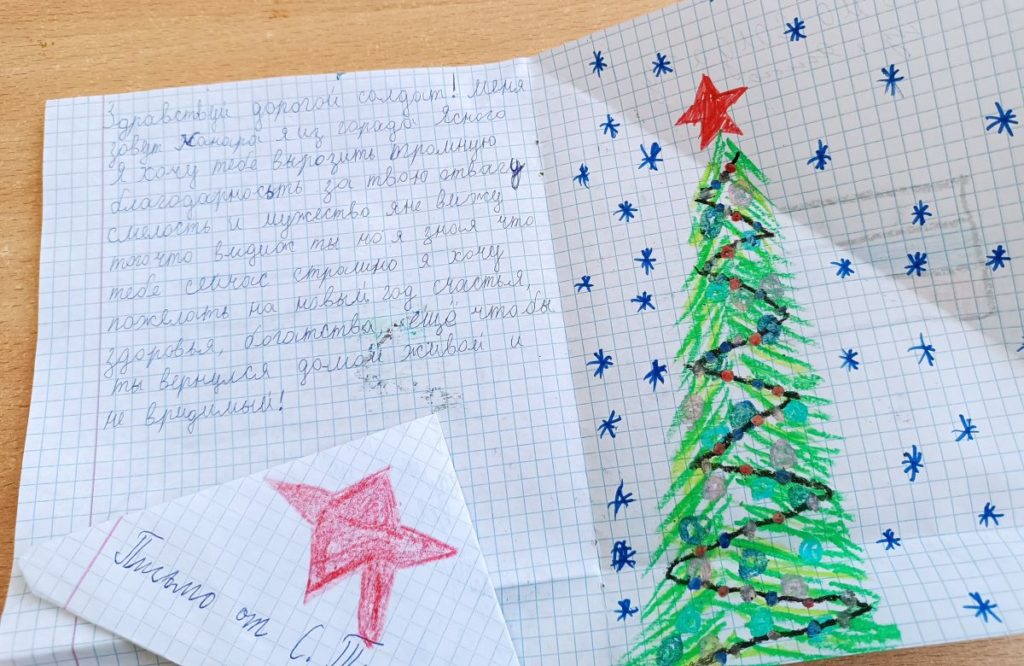 Здравствуй дорогой солдат! Меня
зовут Жанара я из города Ясного
Я хочу тебе вырозить огромную
благодарность за твою отвагу
смелость и мужество яне вижу
того что видиос ты но я зноя что
тебе сейчас стромино я хочу
пожелать на новый год счастья,
здоровья, богатства, ещё что бы
ты вернулся домой живой и
не вридимый!
Письмо от С. Т